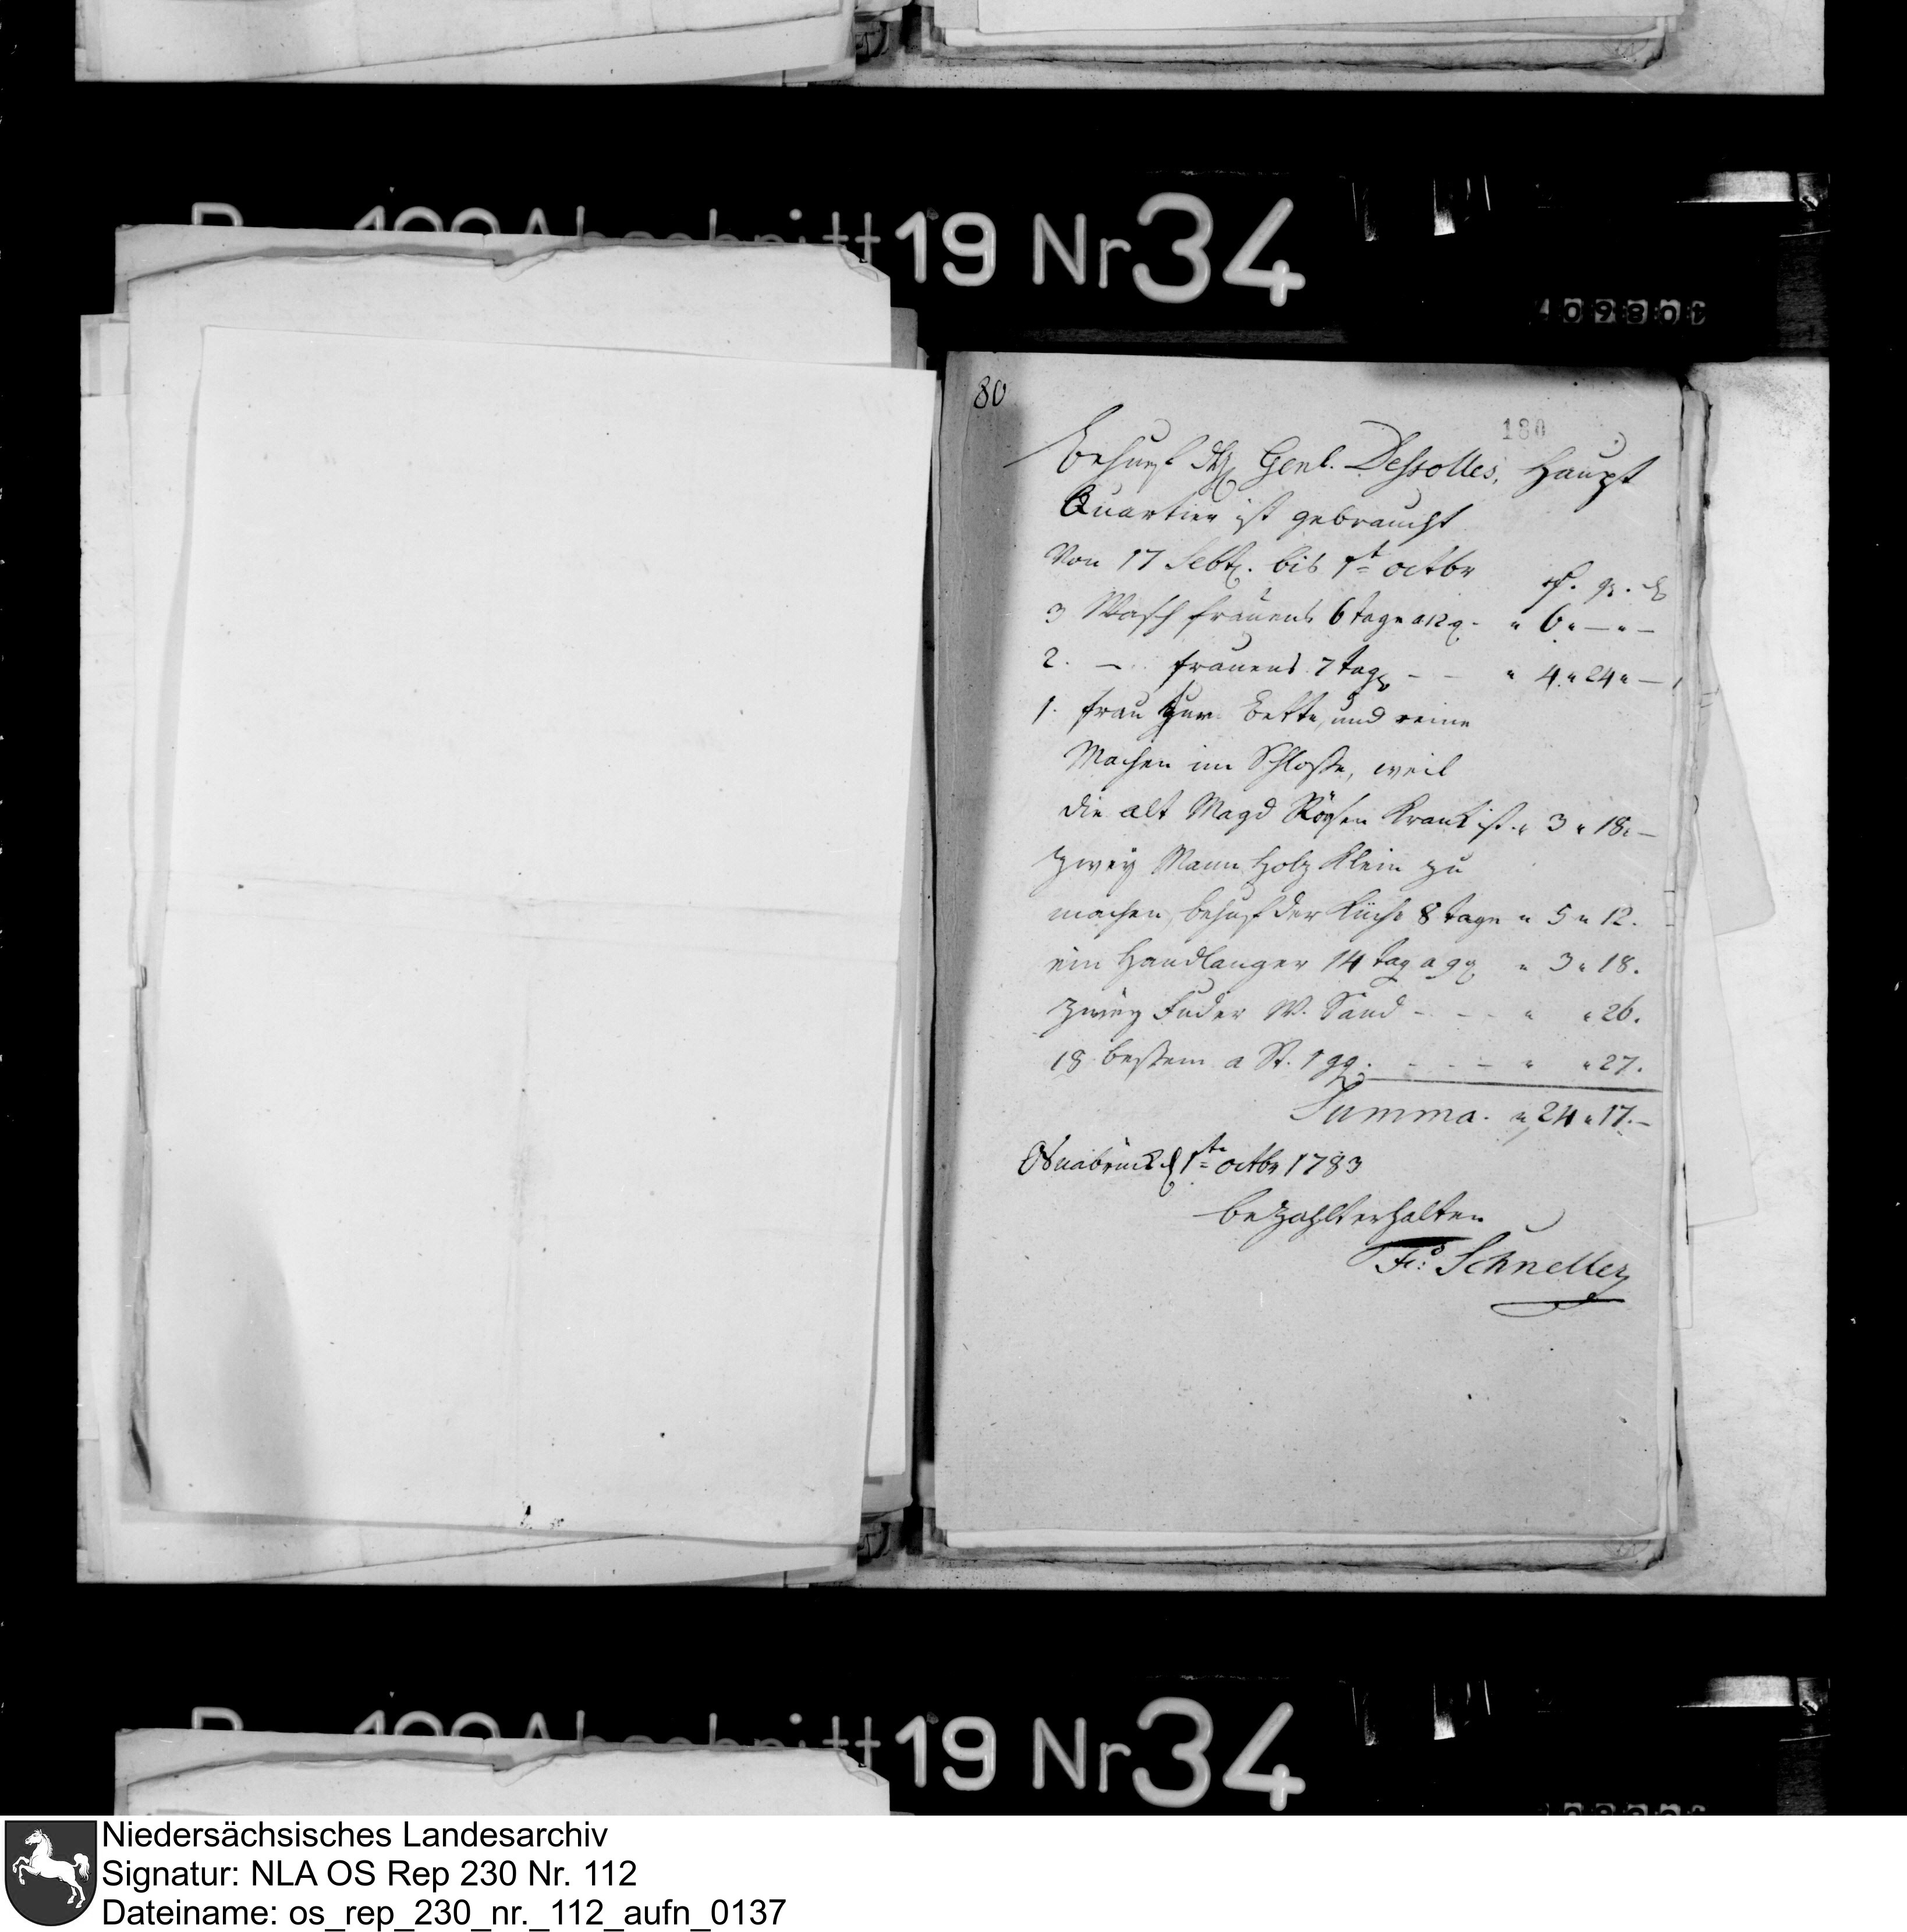 19 Nr 34
80
180
Behuef des Genl. Dessolles, Haupt
Quartier ist gebraucht
Von 17 Sebt. bis 1t octbr
3 Wasch frauens 6 tage a 12 g - " 6 " — " —
2. — frauens 7 tag - - " 4 " 24 " —
1. frau zur Bette, und reine
Machen im Schloße, weil
die alt Magd Krank ist " 3 " 18 " —
Zwey Mann Holz Klein zu
machen, behuf der Küche 8 tage " 5 " 12.
ein Handlanger 14 tag a 9 g " 3 " 18.
Zwey Fuder W. Sand - - - " " 26.
18 besem a St. 1 gg. - - - - " " 27.
Summa. " 24 " 17. —
Osnabrück d 1te octbr 1783
bezahlt erhalten
Schneller
19 Nr 34
Niedersächsisches Landesarchiv
Signatur: NLA OS Rep 230 Nr. 112
Dateiname: os_rep_230_nr._112_aufn_0137